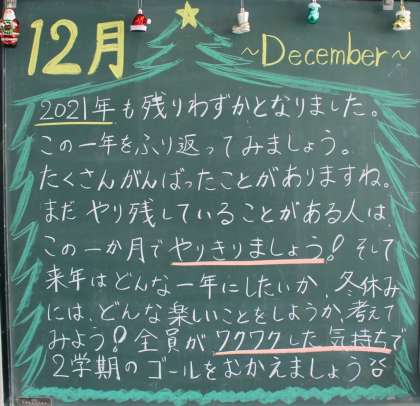 12月
~December~
2021年も残りわずかとなりました。
この一年をふり返ってみましょう。
たくさんがんばったことがありますね。
まだやり残していることがある人は、
この一か月でやりきりましょう！そして
来年はどんな一年にしたいか、冬休み
には、どんな楽しいことをしようか、考えて
みよう！全員がワクワクした気持ちで
2学期のゴールをむかえましょう